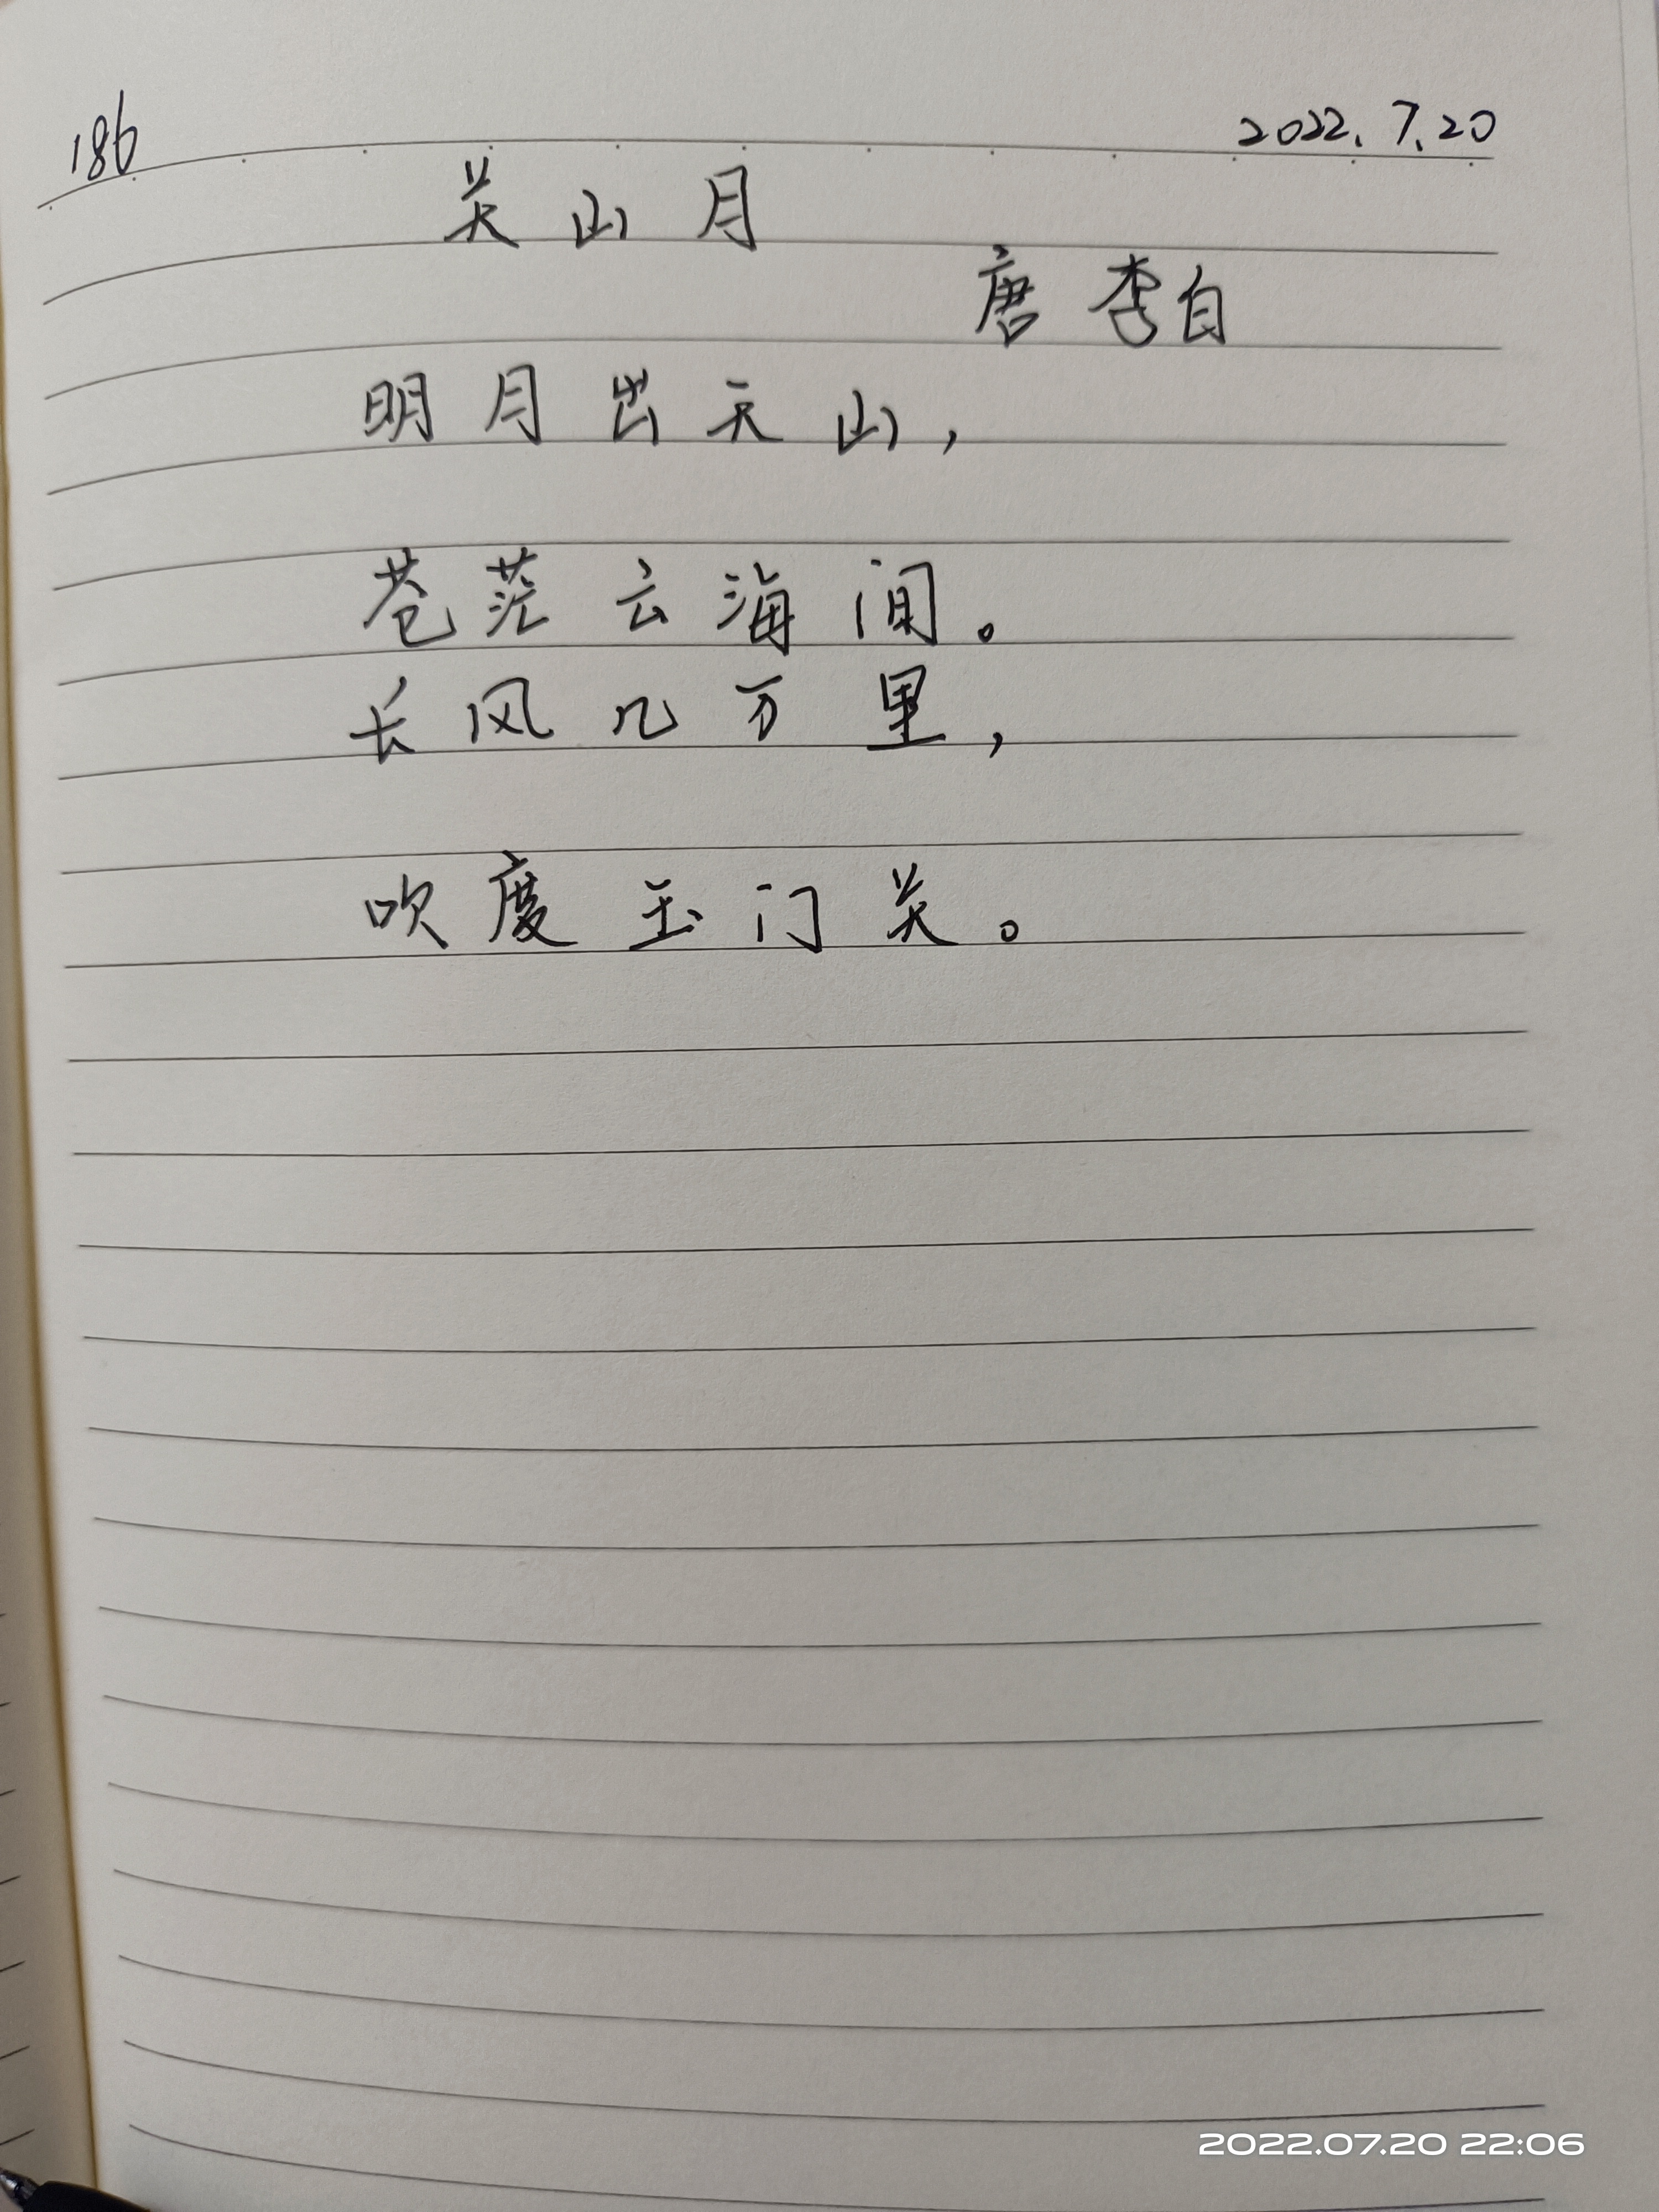 186
2022.7.20
关山月
唐 李白
明月出天山，
苍茫云海间。
长风几万里，
吹度玉门关。
2022.07.20 22:06